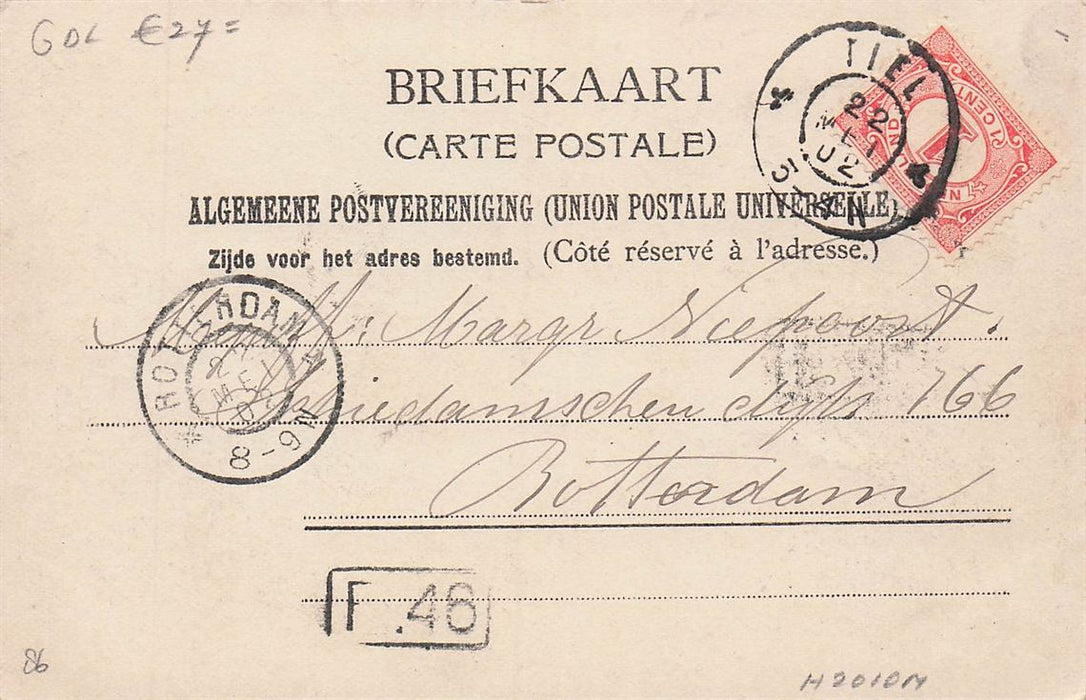 GDL €27=
BRIEFKAART
(CARTE POSTALE)
ALGEMEENE POSTVEREENIGING (UNION POSTALE UNIVERSELLE)
Zijde voor het adres bestemd. (Côté réservé à l'adresse.)
TIEL
22
MEI
02
5-
1 CENT
1
ROTTERDAM
MEI
8-9N
Margr Niepoort.
Schiedamschen dijk 166
Rotterdam
F.46
86
H2010M